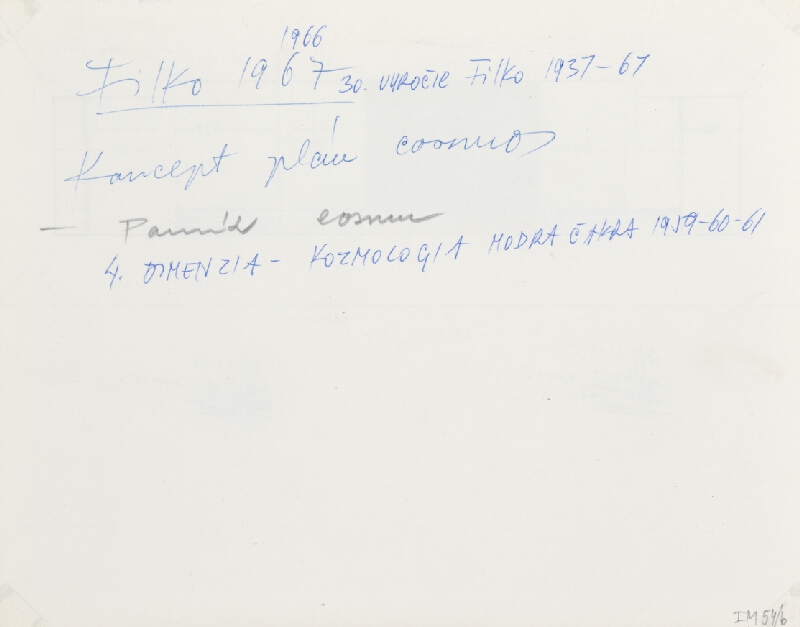 1966
Filko 1967 30. VÝROČIE Filko 1937-67
Koncept plán cosmos
—
4. DIMENZIA - KOZMOLOGIA MODRA ČAKRA 1959-60-61
IM 54/b